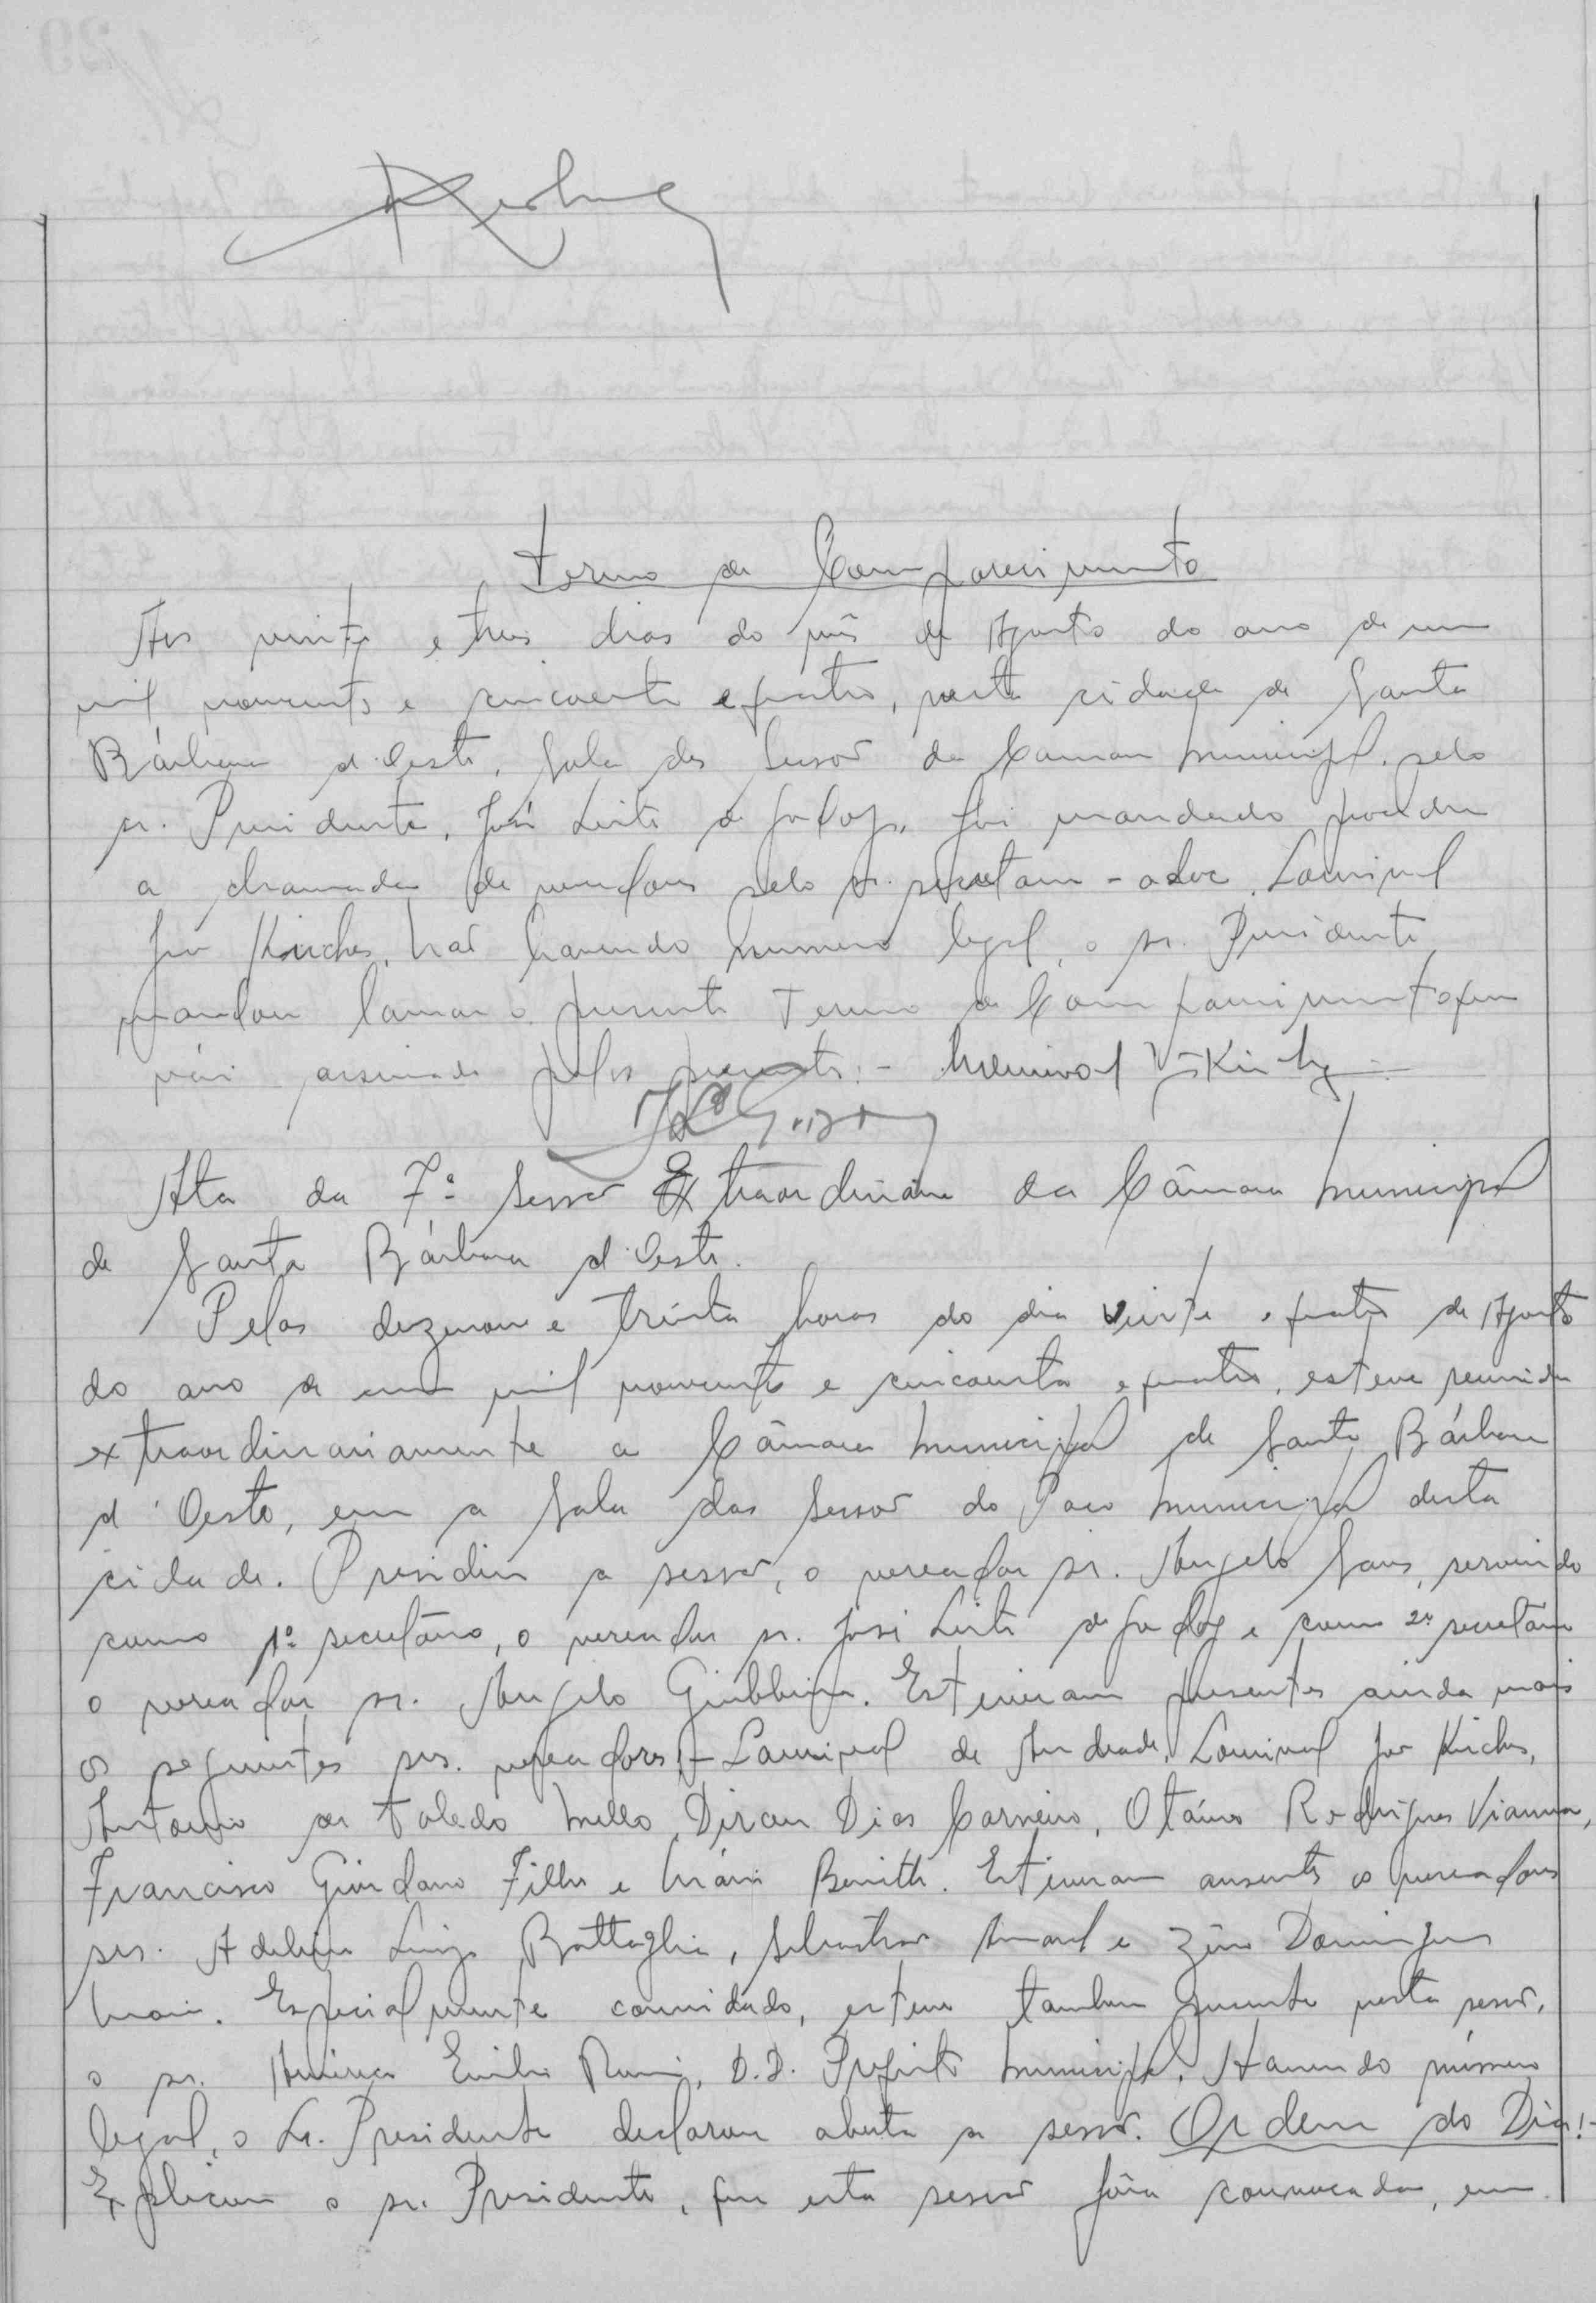 Termo de Comparecimento
Aos vinte e tres dias do mês de Agosto do ano de um
mil novecentos e cincoenta e quatro, nesta cidade de Santa
Bárbara d'Oeste, Sala das Sessões da Camara Municipal, pelo
sr. Presidente, José Leite de Godoy, foi mandado proceder
a chamada de vereadores pelo sr. secretario-adoc. Lourival
Kirches, não havendo numero legal, o sr. Presidente
mandou lavrar o presente Termo de Comparecimento que
vai assinado pelos presentes:-
Ata da 7ª Sessão Extraordinária da Câmara Municipal
de Santa Bárbara d'Oeste.
Pelas dezenove e trinta horas do dia vinte e quatro de Agosto
do ano de um mil novecentos e cincoenta e quatro, esteve reunida
extraordinariamente a Câmara Municipal de Santa Bárbara
d'Oeste, em a Sala das Sessões do Paço Municipal desta
cidade. Presidiu a sessão, o vereador sr. Angelo Sans, servindo
como 1º secretário, o vereador sr. José Leite de Godoy e como 2º secretário
o vereador sr. Angelo Giubbina. Estiveram presentes ainda mais
os seguintes srs. vereadores:- Lourival de Andrade, Lourival Kirches,
Antonio de Toledo Mello, Dirceu Dias Carneiro, Otávio Rodrigues Vianna,
Francisco Giordano Filho e Mário Benitti. Estiveram ausentes os vereadores
srs. Adelino Luiz Battaglia, Sebastião Amaral e Zino Domingues
Maia. Especialmente convidado, esteve tambem presente nesta sessão,
o sr. Américo Emilio Romi, D.D. Prefeito Municipal. Havendo número
legal, o Sr. Presidente declarou aberta a sessão. Ordem do Dia:-
Explicou o sr. Presidente, que esta sessão fôra convocada, em